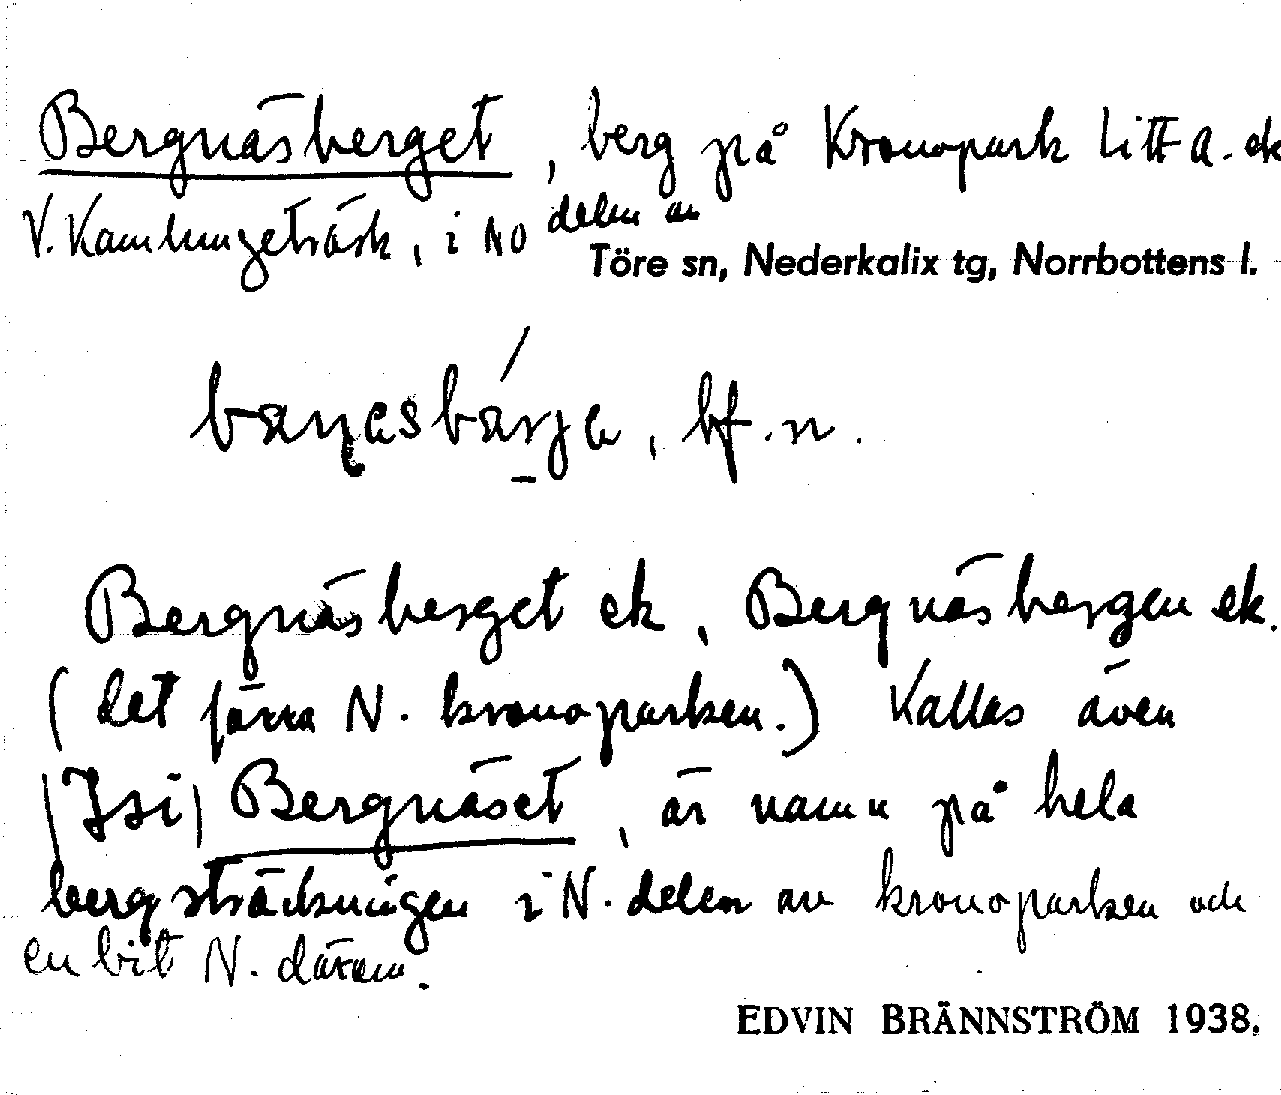 Bergnäsberget, berg på Kronopark Litt A. ek
V. Kamlungeträsk, i NO delen av
Töre sn, Nederkalix tg, Norrbottens l.
bf. n.
Bergnäsberget ek, Bergnäsbergen ek.
(det förra N. kronoparken.) Kallas även
Bergnäset, är namn på hela
bergsträckningen i N. delen av kronoparken och
en bit N. därom.
EDVIN BRÄNNSTRÖM 1938.